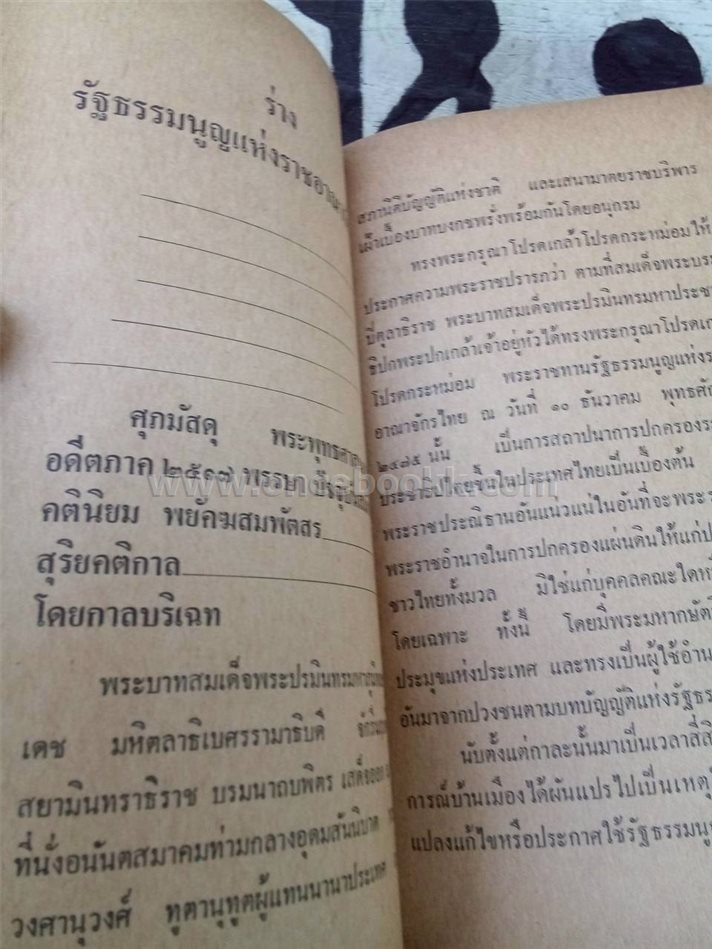 ร่าง
รัฐธรรมนูญแห่งราชอาณา
ศุภมัสดุ พระพุทธศาส
อดีตภาค ๒๕๑๗ พรรษา ปัจจุบัน
คตินิยม พยัคฆสมพัตสร
สุริยคติกาล
โดยกาลบริเฉท
พระบาทสมเด็จพระปรมินทรมหาภูมิพ
เดช มหิตลาธิเบศรรามาธิบดี จักรีน
สยามินทราธิราช บรมนาถบพิตร เสด็จออก
ที่นั่งอนันตสมาคมท่ามกลางอุดมสันนิบาต
วงศานุวงศ์ ทูตานุทูตผู้แทนนานาประเทศ
สภานิติบัญญัติแห่งชาติ และเสนามาตยราชบริพาร
เฝ้าเบื้องบาทบงกชพรั่งพร้อมกันโดยอนุกรม
ทรงพระกรุณาโปรดเกล้าโปรดกระหม่อมให้
ประกาศความพระราชปรารภว่า ตามที่สมเด็จพระบรม
ปิตุลาธิราช พระบาทสมเด็จพระปรมินทรมหาประชา
ธิปกพระปกเกล้าเจ้าอยู่หัวได้ทรงพระกรุณาโปรดเก
โปรดกระหม่อม พระราชทานรัฐธรรมนูญแห่งร
อาณาจักรไทย ณ วันที่ ๑๐ ธันวาคม พุทธศัก
๒๔๗๕ นั้น เป็นการสถาปนาการปกครองระ
ประชาธิปไตยขึ้นในประเทศไทยเป็นเบื้องต้น
พระราชประณิธานอันแน่วแน่ในอันที่จะพระร
พระราชอำนาจในการปกครองแผ่นดินให้แก่ป
ชาวไทยทั้งมวล มิใช่แก่บุคคลคณะใดห
โดยเฉพาะ ทั้งนี้ โดยมีพระมหากษัตริ
ประมุขแห่งประเทศ และทรงเป็นผู้ใช้อำน
อันมาจากปวงชนตามบทบัญญัติแห่งรัฐธร
นับตั้งแต่กาละนั้นมาเป็นเวลาสี่สิ
การณ์บ้านเมืองได้ผันแปรไปเป็นเหตุใ
แปลงแก้ไขหรือประกาศใช้รัฐธรรมนู